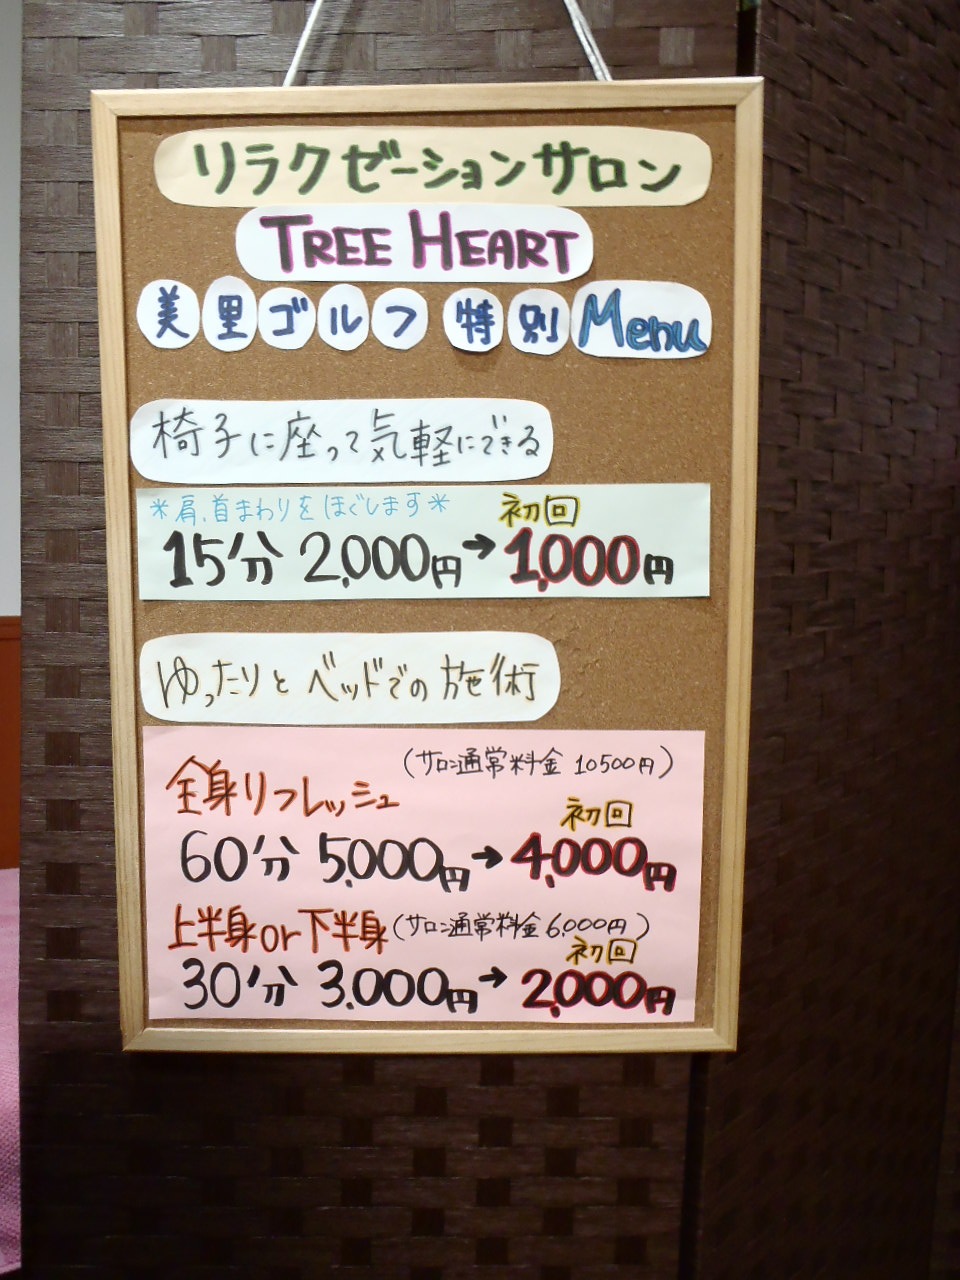 リラクゼーションサロン
TREE HEART
美里ゴルフ 特別 Menu
椅子に座って気軽にできる
*肩、首まわりをほぐします*
初回
15分 2,000円→1,000円
ゆったりとベッドでの施術
(サロン通常料金 10500円)
全身リフレッシュ
初回
60分 5,000円→4,000円
上半身or下半身(サロン通常料金6,000円)
初回
30分 3,000円→2,000円